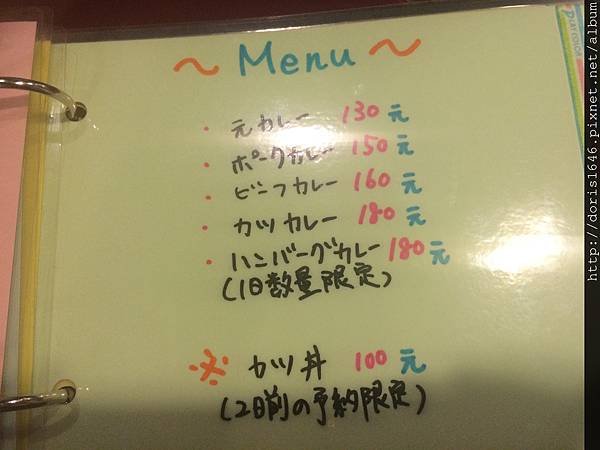 ~ Menu ~
・元カレー 130 元
・ポークカレー 150 元
・ビーフカレー 160 元
・カツカレー 180 元
・ハンバーグカレー 180 元
(1日数量限定)
※ カツ丼 100 元
(2日前の予約限定)
http://doris1646.pixnet.net/album